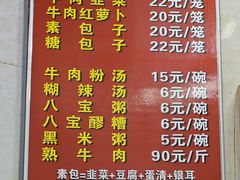 牛肉韭菜 22元/笼
牛肉红萝卜 20元/笼
素包子 20元/笼
糖包子 22元/笼
牛肉粉汤 15元/碗
糊辣汤 6元/碗
八宝粥 6元/碗
八宝醪糟 6元/碗
黑米粥 5元/碗
熟牛肉 90元/斤
素包=韭菜+豆腐+蛋清+银耳